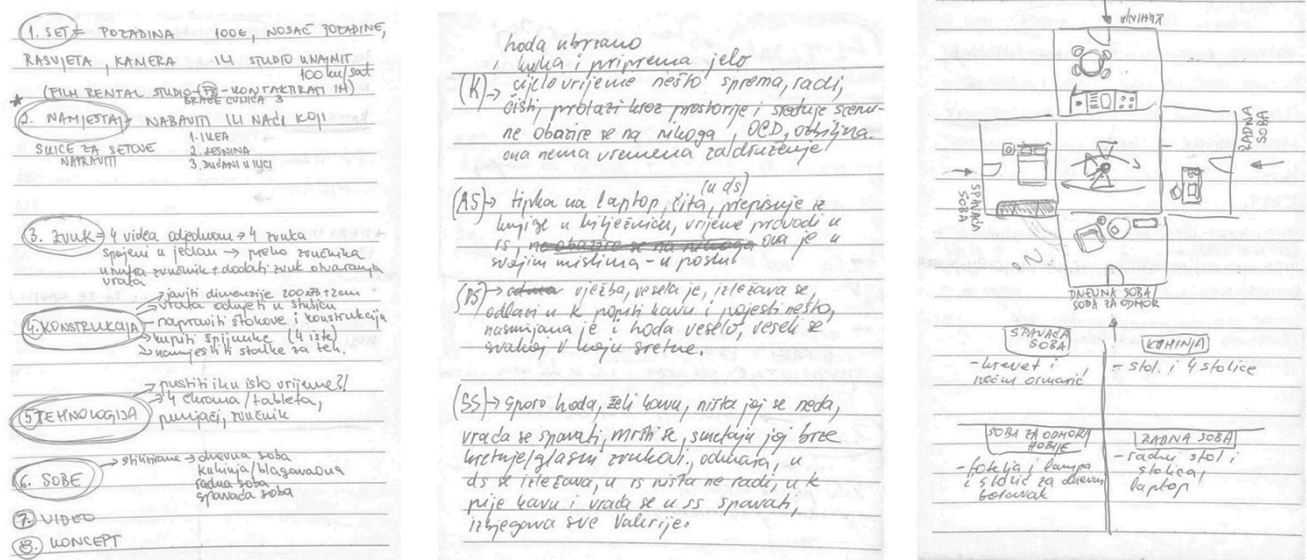 1. SET = POZADINA 100€, NOSAČ POZADINE,
RASVJETA, KAMERA ILI STUDIO UNAJMIT
100 kn/sat
(FILM RENTAL STUDIO - KONTAKTIRATI IH)
BRAĆE CVIJIĆA 3
2. NAMJEŠTAJ - NABAVITI ILI NAĆI KOJI
SKICE ZA SETOVE
NAPRAVITI
1. IKEA
2. LESNINA
3. DUĆANI U ILICI
3. ZVUK = 4 videa odjednom → 4 zvuka
Spojeni u jedan → preko zvučnika
unutra zvučnik + dodati zvuk otvaranja
vrata
4. KONSTRUKCIJA
→ javiti dimenzije 200x83+2cm
→ vrata odvesti u Stubicu
→ napraviti štokove i konstrukciju
→ kupiti špijunke (4 iste)
→ namjestiti stalke za tel.
5. TEHNOLOGIJA
→ pustiti ih u isto vrijeme?!
→ 4 ekrana/tableta,
punjači, zvučnik
6. SOBE
→ stilizirane → dnevna soba
kuhinja/blagavaona
radna soba
spavaća soba
7. VIDEO
8. KONCEPT
hoda ubrzano
, kuha i priprema jelo
(K) → cijelo vrijeme nešto sprema, radi,
čisti, prolazi kroz prostorije i sređuje scenu-
ne obazire se na nikoga, OCD, ozbiljna.
ona nema vremena za druženje
(u ds)
(RS) → tipka na laptop, čita, prepisuje iz
knjige u bilježnicu, vrijeme provodi u
rs, ne obazire se na nikoga ona je u
svojim mislima - u poslu
(DS) → vježba, vesela je, izležava se,
odlazi u k popiti kavu i pojesti nešto,
nasmijana je i hoda veselo, veseli se
svakoj u koju sretne.
(SS) → Sporo hoda, želi kavu, ništa joj se neda,
vraća se spavati, mršti se, smetaju joj brze
kretnje/glasni zvukovi, odmara, u
ds se izležava, u rs ništa ne radi, u k
pije kavu i vraća se u ss spavati,
izbjegava sve Valerije.
KUHINJA
RADNA
SOBA
SPAVAĆA
SOBA
DNEVNA SOBA/
SOBA ZA ODMOR
SPAVAĆA
SOBA
- krevet i
noćni ormarić
KUHINJA
- stol i 4 stolice
SOBA ZA ODMOR/
HOBIJE
- fotelja i lampa
i stolić za dnevni
boravak
RADNA SOBA
- radni stol i
stolica,
laptop